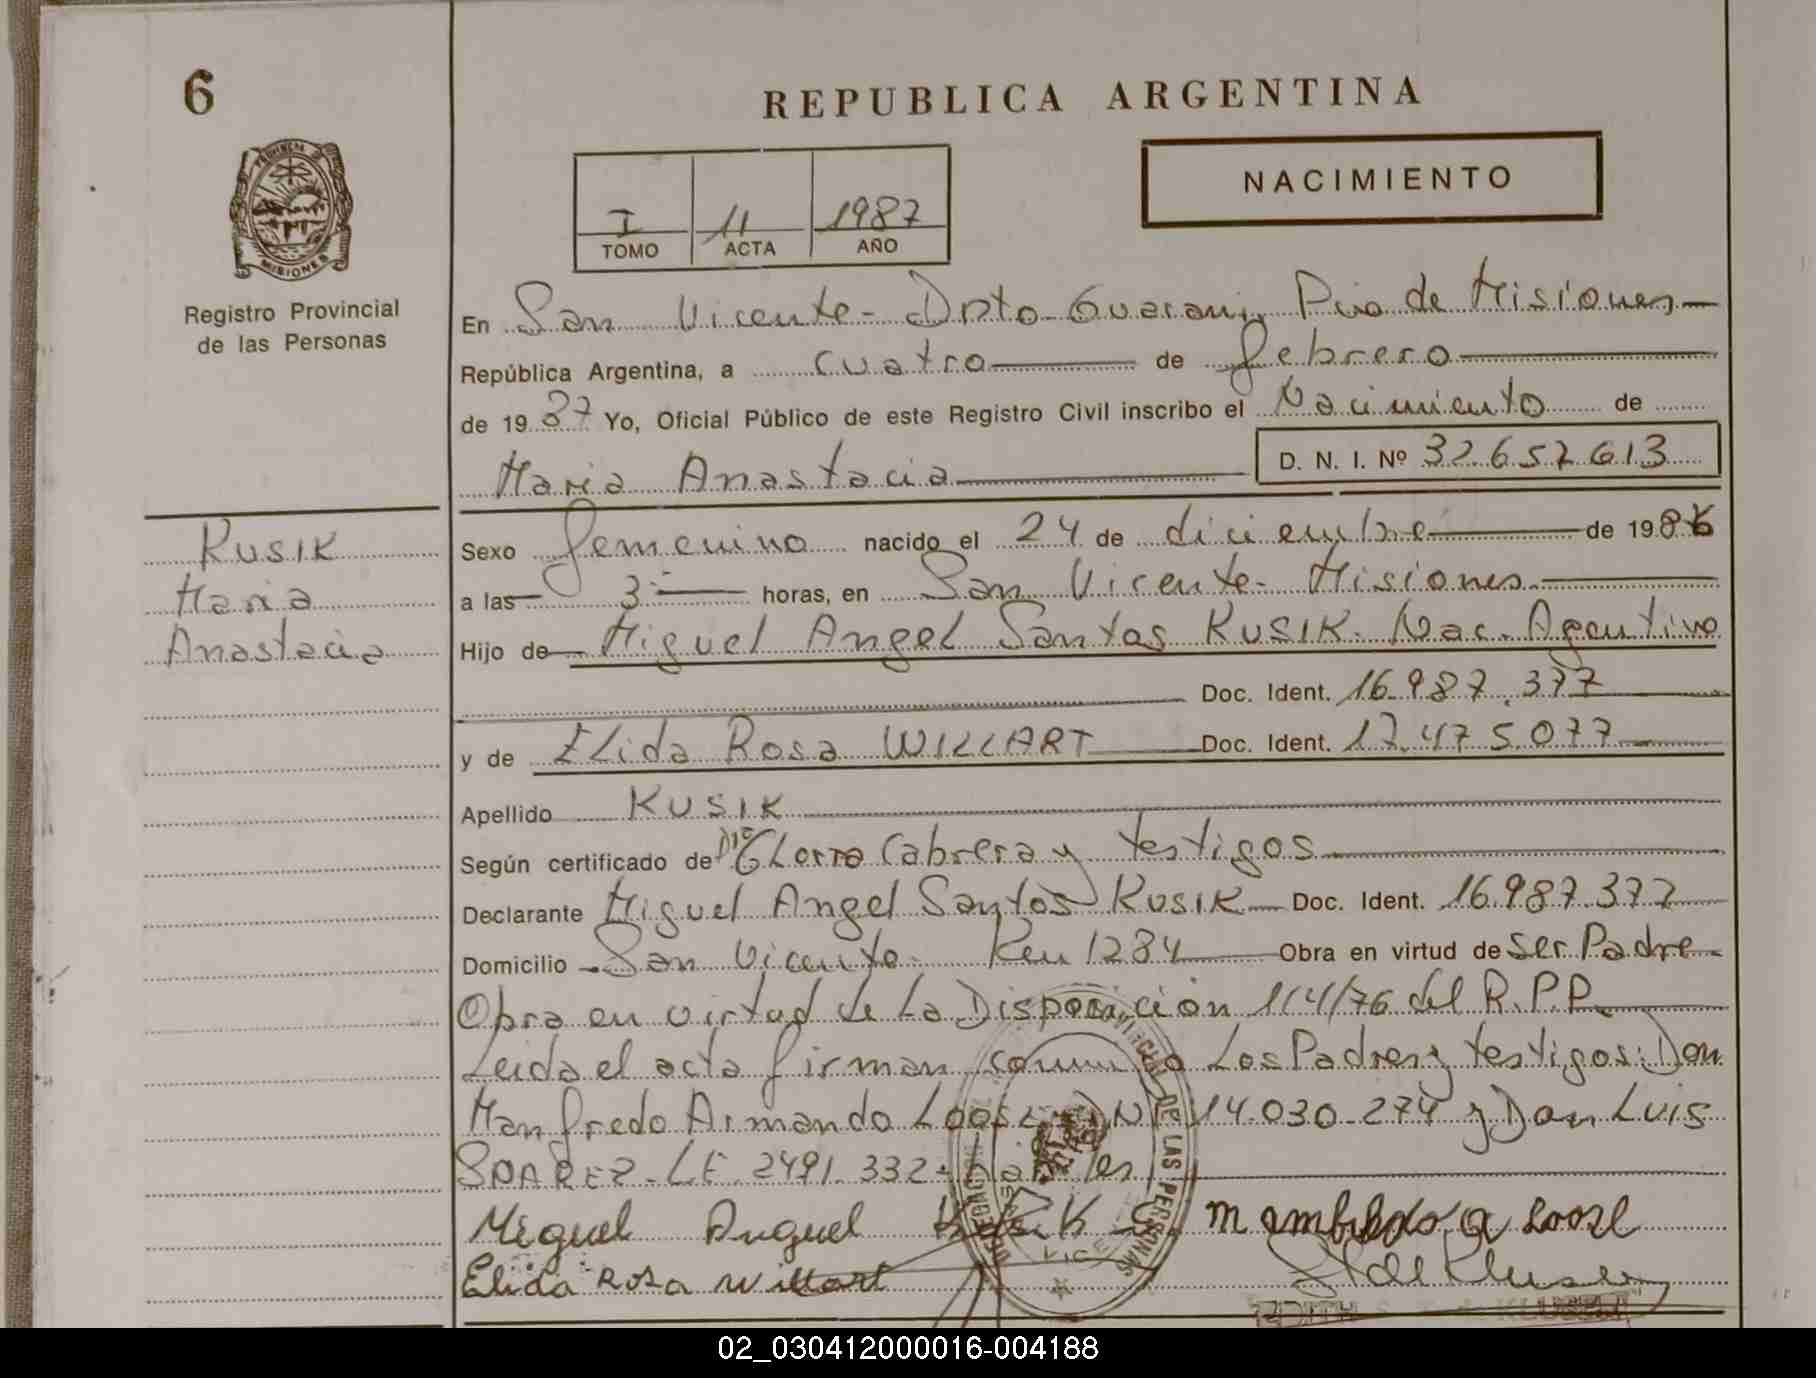 6
REPUBLICA ARGENTINA
NACIMIENTO
I 11 1987
TOMO ACTA AÑO
PROVINCIA DE
MISIONES
Registro Provincial
de las Personas
En San Vicente - Dpto Guarani, Pcia de Misiones
República Argentina, a cuatro de febrero
de 1987 Yo, Oficial Público de este Registro Civil inscribo el Nacimiento de
Maria Anastacia D. N. I. Nº 32.652.613
KUSIK
Maria
Anastacia
Sexo femenino nacido el 24 de diciembre de 1986
a las 3 horas, en San Vicente - Misiones
Hijo de Miguel Angel Santos KUSIK. Nac. Argentino
Doc. Ident. 16.987.377
y de ELida Rosa WILLART Doc. Ident. 17.475.077
Apellido KUSIK
Según certificado de Cabrera y testigos
Declarante Miguel Angel Santos KUSIK Doc. Ident. 16.987.377
Domicilio San Vicente - Km 1284 Obra en virtud de ser Padre
Obra en virtud de La Disposición 114/76 del R.P.P.
Leida el acta firman conmigo Los Padres y testigos: Don
Manfredo Armando Loose DNI 14.030.274 y Don Luis
SOAREZ - LE 2491.332
Miguel Anguel KusiK
Elida Rosa Willart
DE LAS PERSONAS
02_030412000016-004188